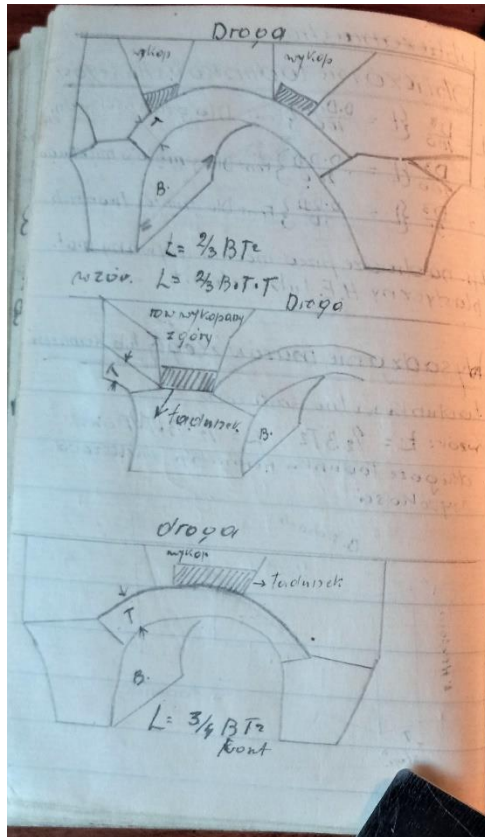 Droga
wykop
wykop
T
B.
Ł = 2/3 BT²
wzór. L = 2/3 B.T.T
Droga
rów wykopany
z góry
T
ładunek
B.
droga
wykop
→ ładunek
T
B.
L = 3/4 BT²
font